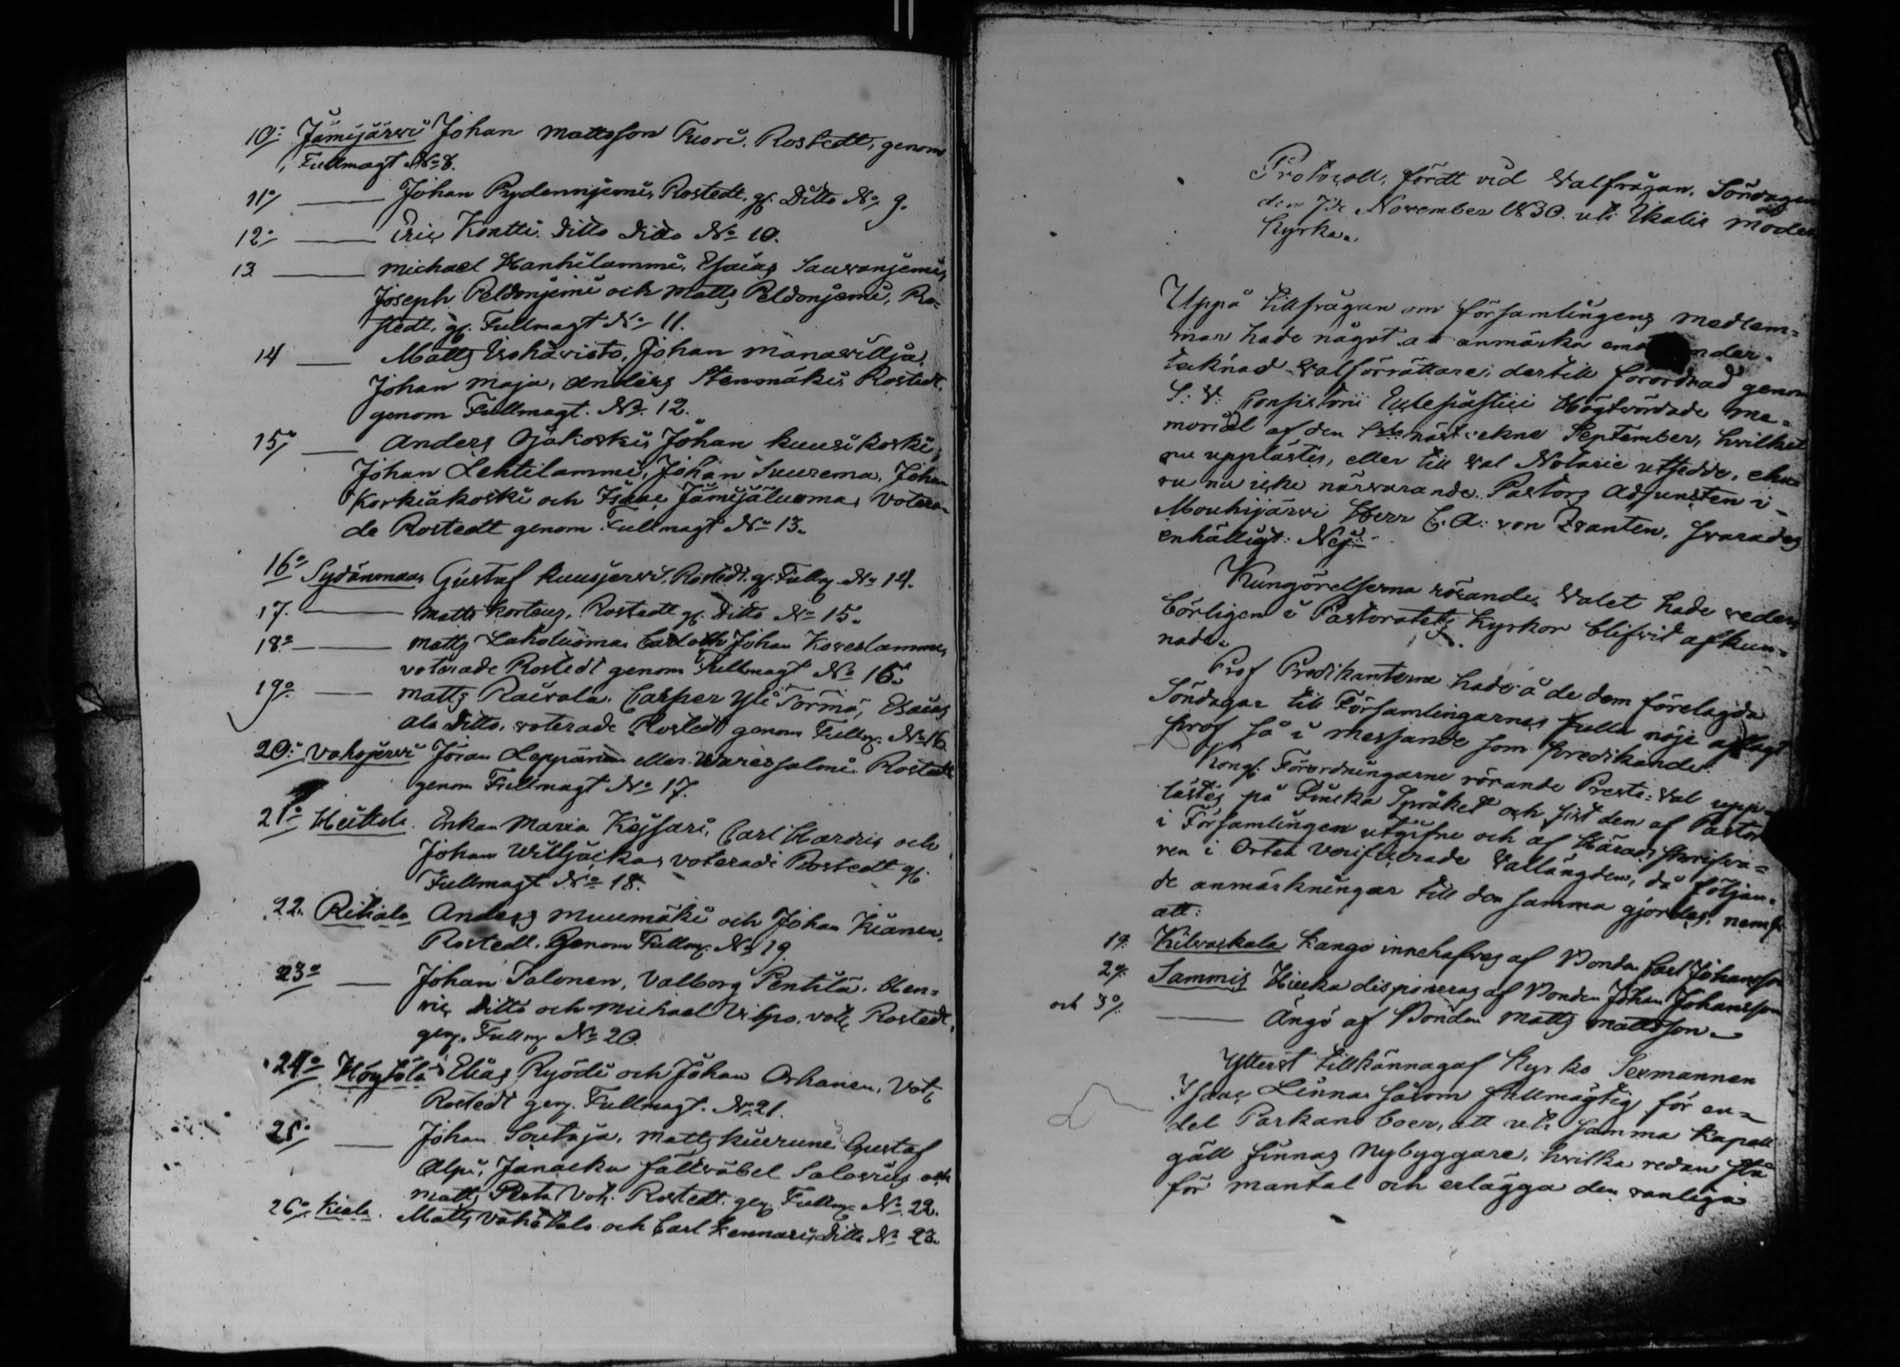 10:o Jämijärvi Johan Mattsson Kuori, Rostedt, genom
Fullmagt No 8.
11o/ — Johan Rydenniemi, Rostedt, gf. Ditto No 9.
12o — Eric Kontti. Ditto Ditto No 10.
13 — Michael Hanhilammi, Esaias Sauvanjemi,
Joseph Peldonjemi och Matts Peldonjemi, Ro-
stedt, gf. Fullmagt No 11.
14 — Matts Isohavisto, Johan Manawillja,
Johan Maja, Anders Stenmäki, Rostedt,
genom Fullmagt. No. 12.
15o/ — Anders Ojakoski, Johan Kuusikoski,
Johan Lehtilammi, Johan Suurema, Johan
Korkiakoski och Isaac Jämijäluoma, votera-
de Rostedt genom Fullmagt No 13.
16o Sydänmaa, Gustaf Kuusjervi, Rostedt gf. Fullm. No 14.
17. — Matts Korteus, Rostedt gf. Ditto No 15.
18o — Matts Laholuoma, Carl och Johan Koveslammi,
voterade Rostedt genom Fullmagt No 16.
19o — Matts Raivala, Casper Yli Törmä, Esaias
Ala Ditto, voterade Rostedt genom Fullm. No 16
20:o Vahojärvi Jöran Leppänen eller Waressalomi Rostedt
genom Fullmagt No 17.
21o Heittola. Enkan Maria Kejsari, Carl Hardis och
Johan Williacka, voterade Rostedt gf.
Fullmagt No 18.
22. Riihiala Anders Muumäki och Johan Kianen,
Rostedt. Genom Fullm. No 19.
23o — Johan Talonen, Valborg Pentilä, Hen-
ric Ditto och Michael Uhpo, vot. Rostedt,
gen. Fullm. No 20.
24o Höytölä Elias Ryödi och Johan Orhanen, Vot.
Rostedt gen. Fullmagt. No 21.
25o — Johan Soutaja, Matts Kuerune Gustaf
Alpi, Janacka fältväbel Salovius och
Matts Perta Vot. Rostedt gen. Fullm. No 22.
26o. Kiala. Matts Vähätalo och Carl Kennari, Ditto No 23.
Protocoll, fördt vid Valfrågan, Söndagen
den 7de November 1830. uti Ikalis Moder
Kyrka.
Uppå tillfrågan om församlingens medlem-
mar hade något att anmärka emot under-
tecknad Valförrättare, dertill förordnad genom
S: V: Consistorii Ecclesiastici Högtvördade Me-
morial af den 1sta nästvekne September, hvilket
nu upplästes, eller till Val Notarie utsedde, ehu
ru nu icke närvarande Pastors Adjuncten i
Mouhijärvi Herr C. A. von Zwanten, svarades
enhälligt: Nej.
Kungörelserna rörande Valet hade redan
börligen i Pastoratets Kyrkor blifvit afkun-
nade.
Prof Predikanterna hade å de dem förelagda
Söndagar till Församlingarnes fulla nöje aflagt
prof så i messande som predikande.
Kongl. Förordningarne rörande Prestaval upp-
lästes på Finska Språket och sist den af Pastor
i Församlingen utgifne och af Häradsskrifva-
ren i Orten verificerade Vallängden, då följan-
de anmärkningar till den samma gjordes, neml.
att:
1o. Kilvaskala Kangs innehafves af Bonden Carl Johansson
2o. Sammi, Hiecka disponeras af Bonden Johan Johansson
och 3o/. — Ängö af Bonden Matts Mattsson.
Ytterst tillkännagaf Kyrko Sexmannen
Isaac Linna såsom fullmägtig för en-
del Parkano boer, att uti samma Kapell
gäll finnas Nybyggare, hvilka redan stå
för mantal och erlägga den vanliga